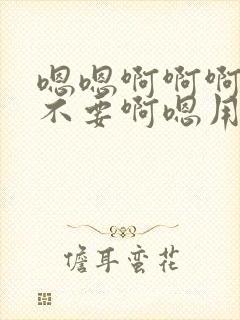 嗯嗯啊啊啊
不要啊嗯用
儋耳蛮花